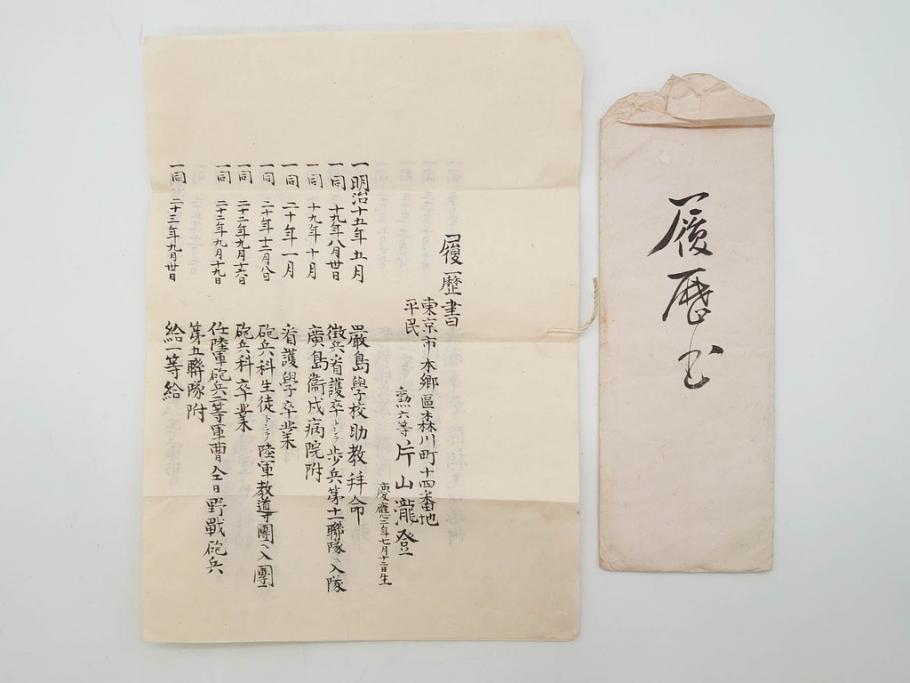 履歴書
東京市本郷區森川町十四番地
平民
勲六等 片山瀧登
慶應二年七月十二日生
一明治十五年五月 嚴島學校助教拜命
一同 十九年八月廿日 徴兵看護卒トシテ歩兵第十一聯隊ヘ入隊
一同 十九年十月 廣島衞戍病院附
一同 二十年一月 看護學卒業
一同 二十年十二月八日 砲兵科生徒トシテ陸軍教導團ヘ入團
一同 二十二年九月十六日 砲兵科卒業
一同 二十二年九月十九日 任陸軍砲兵二等軍曹 仝日野戰砲兵
第五聯隊附
一同 二十三年九月廿日 給一等給
履歴书